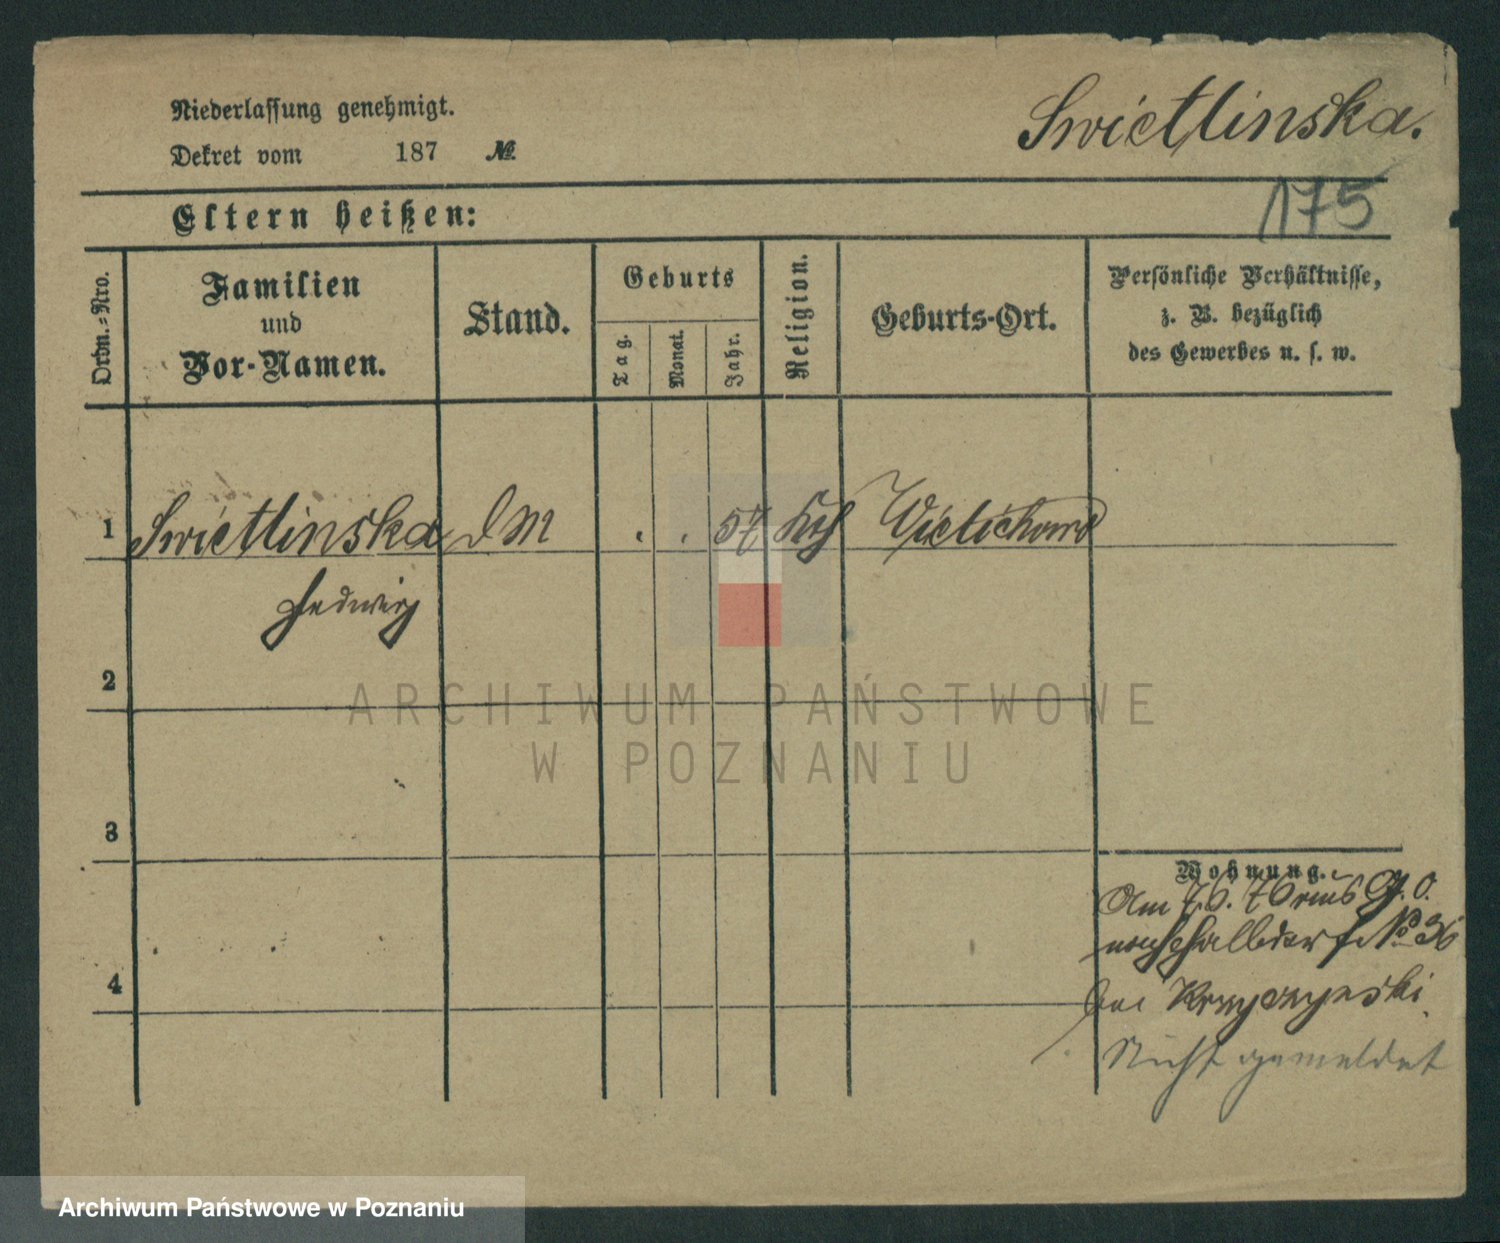 Swietlinska.
Niederlassung genehmigt.
Dekret vom 187 №
175
Eltern heißen:
Ordn.-Nro.
Familien
und
Vor-Namen.
Stand.
Geburts
Tag.
Monat.
Jahr.
Religion.
Geburts-Ort.
Persönliche Verhältnisse,
z. B. bezüglich
des Gewerbes u. s. w.
1 Swietlinska DM . . 57 kth Wielichowo
Hedwig
2
ARCHIWUM PAŃSTWOWE
W POZNANIU
3
Wohnung.
Am 7.6.76 von
nach Halbdorf № 36
4
bei
Nicht gemeldet
Archiwum Państwowe w Poznaniu